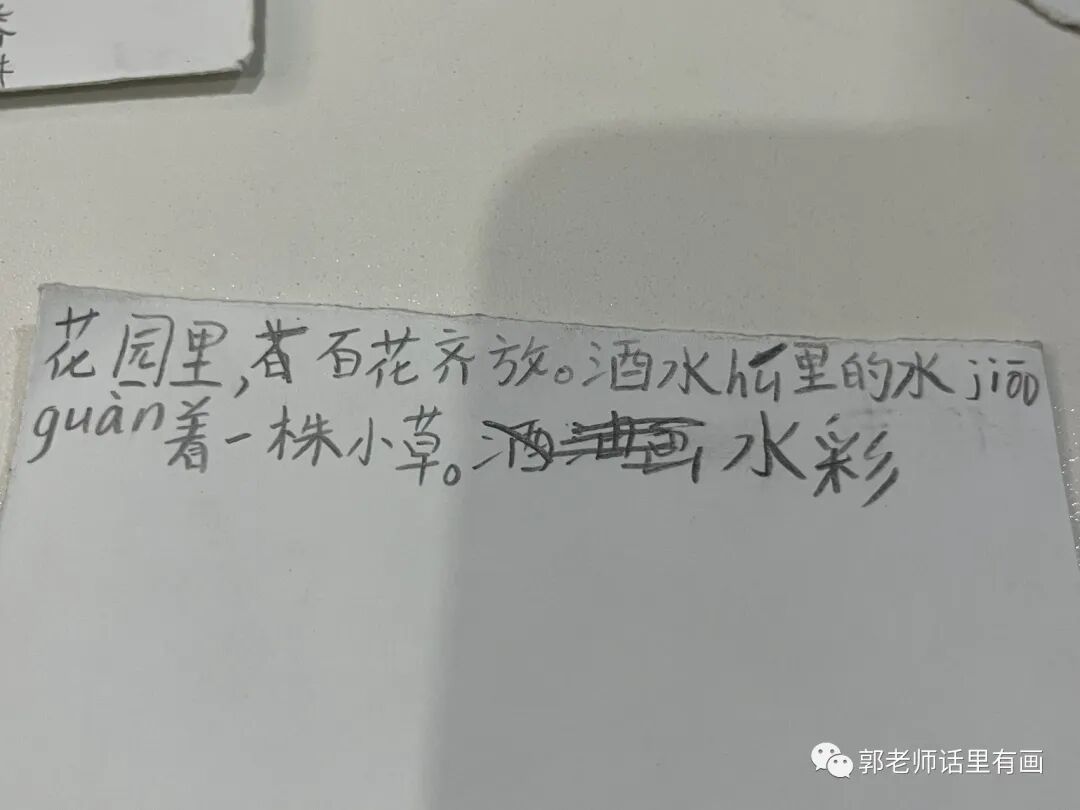 春
花园里,百花齐放。酒水hú里的水jiāo
guàn着一株小草。水彩
郭老师话里有画